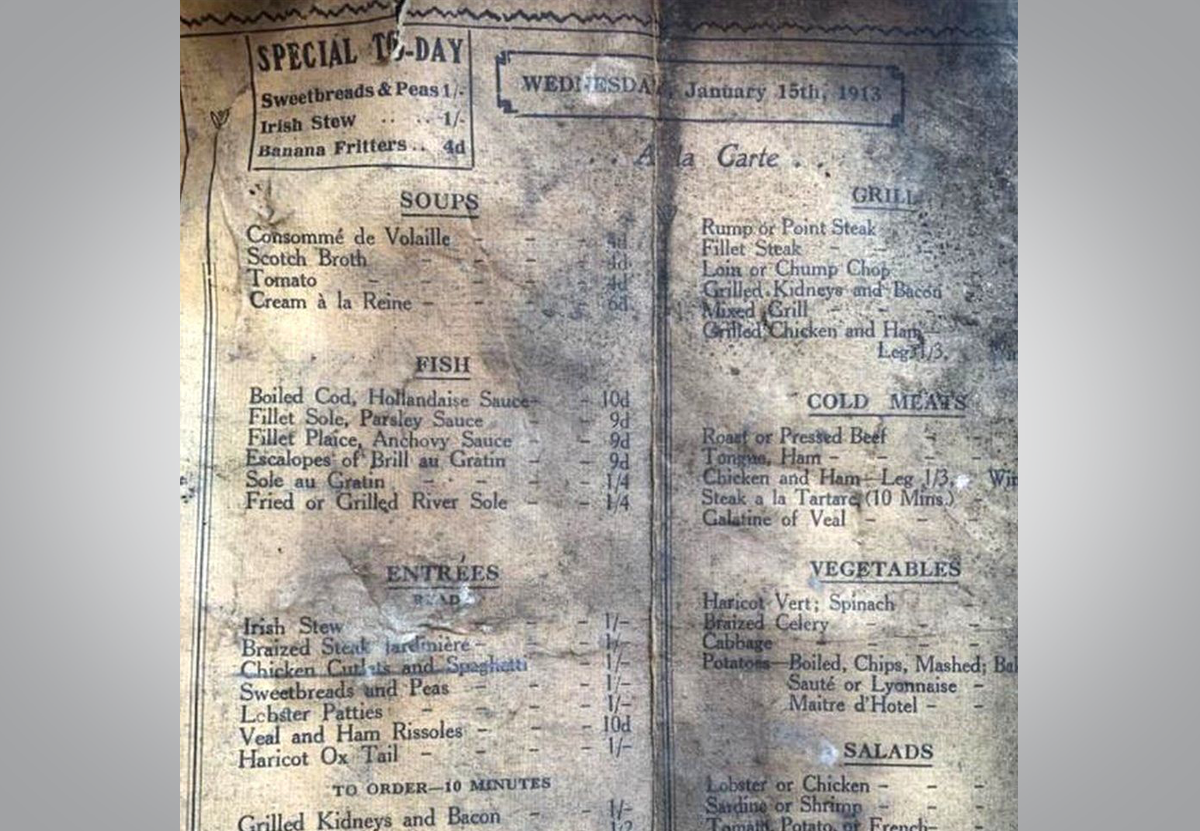 SPECIAL TO-DAY
Sweetbreads & Peas 1/-
Irish Stew .. .. 1/-
Banana Fritters .. 4d
WEDNESDAY, January 15th, 1913
. . A la Carte . .
SOUPS
Consommé de Volaille - - - 4d
Scotch Broth - - - - 4d
Tomato - - - - - 4d
Cream à la Reine - - - - 6d
FISH
Boiled Cod, Hollandaise Sauce - - 10d
Fillet Sole, Parsley Sauce - - 9d
Fillet Plaice, Anchovy Sauce - - 9d
Escalopes of Brill au Gratin - - 9d
Sole au Gratin - - - - 1/4
Fried or Grilled River Sole - - 1/4
ENTRÉES
Irish Stew - - - - 1/-
Braized Steak Jardinière - - - 1/-
Chicken Cutlets and Spaghetti - 1/-
Sweetbreads and Peas - - - 1/-
Lobster Patties - - - - 1/-
Veal and Ham Rissoles - - - 10d
Haricot Ox Tail - - - - 1/-
TO ORDER—10 MINUTES
Grilled Kidneys and Bacon - - 1/-
GRILL
Rump or Point Steak
Fillet Steak - -
Loin or Chump Chop
Grilled Kidneys and Bacon
Mixed Grill - -
Grilled Chicken and Ham—
Leg 1/3.
COLD MEATS
Roast or Pressed Beef - -
Tongue, Ham - - - -
Chicken and Ham—Leg 1/3. Win
Steak a la Tartare (10 Mins.) -
Galatine of Veal - - -
VEGETABLES
Haricot Vert; Spinach -
Braized Celery - - -
Cabbage - - - -
Potatoes—Boiled, Chips, Mashed; Bak
Sauté or Lyonnaise -
Maitre d'Hotel - -
SALADS
Lobster or Chicken - - -
Sardine or Shrimp - - -
Tomato, Potato, or French- -